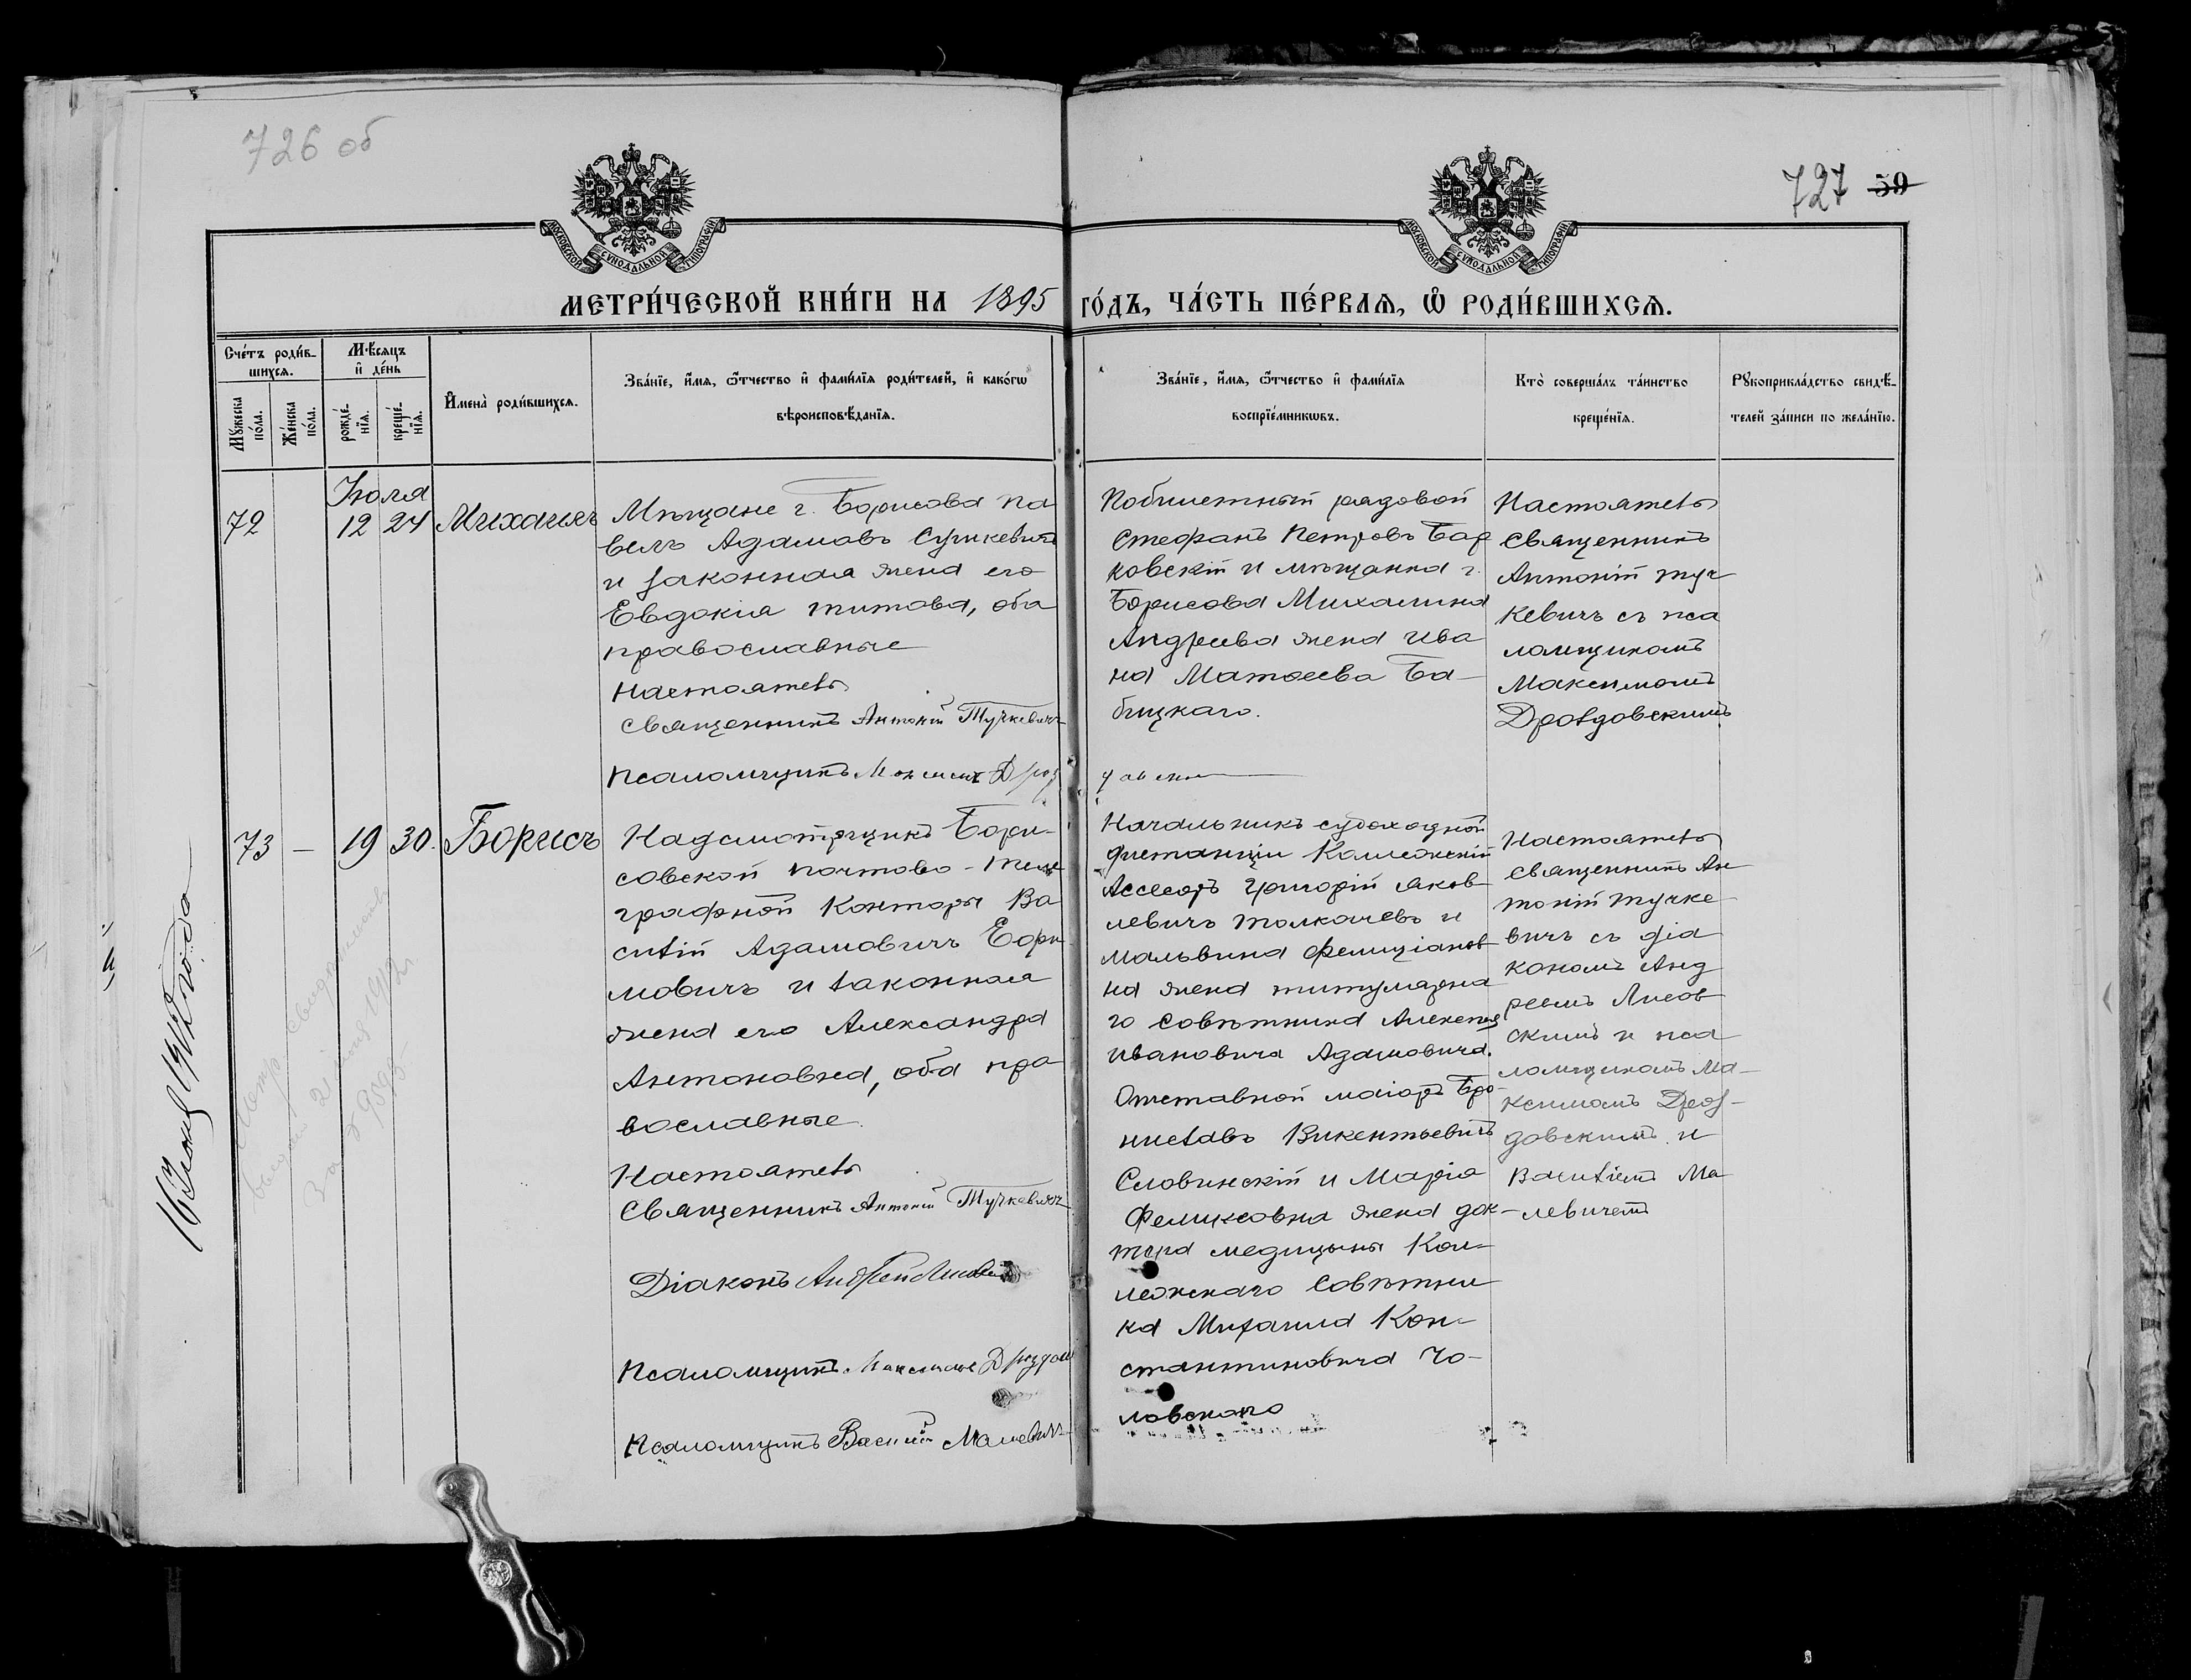 726 об
727 59
МОСКОВСКОЙ СѴНОДАЛЬНОЙ ТИПОГРАФІИ
МОСКОВСКОЙ СѴНОДАЛЬНОЙ ТИПОГРАФІИ
МЕТРИ́ЧЕСКОЙ КНИ́ГИ НА 1895 ГО́ДЪ, ЧА́СТЬ ПЕ́РВАѦ, Ѡ҆ РОДИ́ВШИХСѦ.
Сче́тъ роди́в-
шихсѧ.
Мꙋжеска
по́ла.
Же́нска
по́ла.
Мѣ́сѧцъ
и҆ де́нь
рожде́-
нїѧ.
креще́-
нїѧ.
И҆мена̀ роди́вшихсѧ.
Зва́нїе, и҆́мѧ, ѻ҆́тчество и҆ фами́лїѧ роди́телей, и҆ како́гѡ
вѣроисповѣ́данїѧ.
Зва́нїе, и҆́мѧ, ѻ҆́тчество и҆ фами́лїѧ
воспрїе́мникѡвъ.
Кто̀ соверша́лъ та́инство
креще́нїѧ.
Рꙋкоприкла́дство свидѣ́-
телей за́писи по жела́нїю.
Іюля
72 12 24 Михаилъ
Мѣщане г. Борисова Па
велъ Адамовъ Сушкевичъ
и законная жена его
Евдокіа Титова, оба
православные
Настоятель
Священникъ Антоній Тучкевичъ
Псаломщикъ Максимъ Дроз
довскій
Побилетный рядовой
Стефанъ Петровъ Бар
ковскій и мѣщанка г.
Борисова Михалина
Андреева жена Ива
на Матѳеева Ба-
бицкаго.
Настоятель
Священникъ
Антоній Туч
кевичъ съ пса
ломщикомъ
Максимомъ
Дроздовскимъ
73 — 19 30. Борисъ
Надсмотрщикъ Бори-
совской почтово-теле
графной Конторы Ва
силій Адамовичъ Ефи
мовичъ и законная
жена его Александра
Антоновна, оба пра
вославные.
Настоятель
Священникъ Антоній Тучкевичъ
Діаконъ Андрей Лисовскій
Псаломщикъ Максимъ Дроздов
Псаломщикъ Василій Малевичъ
Начальникъ судоходной
дистанціи Коллежскій
Ассесоръ Григорій Яков-
левичъ Толкачевъ и
Мальвина Фелиціанов
на жена титулярна
го Совѣтника Александ
Ивановича Адамовича.
Отставной маіоръ Бро-
ниславъ Викентьевичъ
Словинскій и Марія
Феликсовна жена док-
тора медицины Кол-
лежскаго Совѣтни
ка Михаила Кон-
стантиновича Чо-
ловскаго
Настоятель
Священникъ Ан
тоній Тучке
вичъ съ діа
кономъ Анд
реемъ Лисов
скимъ и пса
ломщикомъ Ма-
ксимомъ Дроз-
довскимъ и
Василіемъ Ма
левичемъ
Метр. свидѣтельс
21 1912 г.
За №